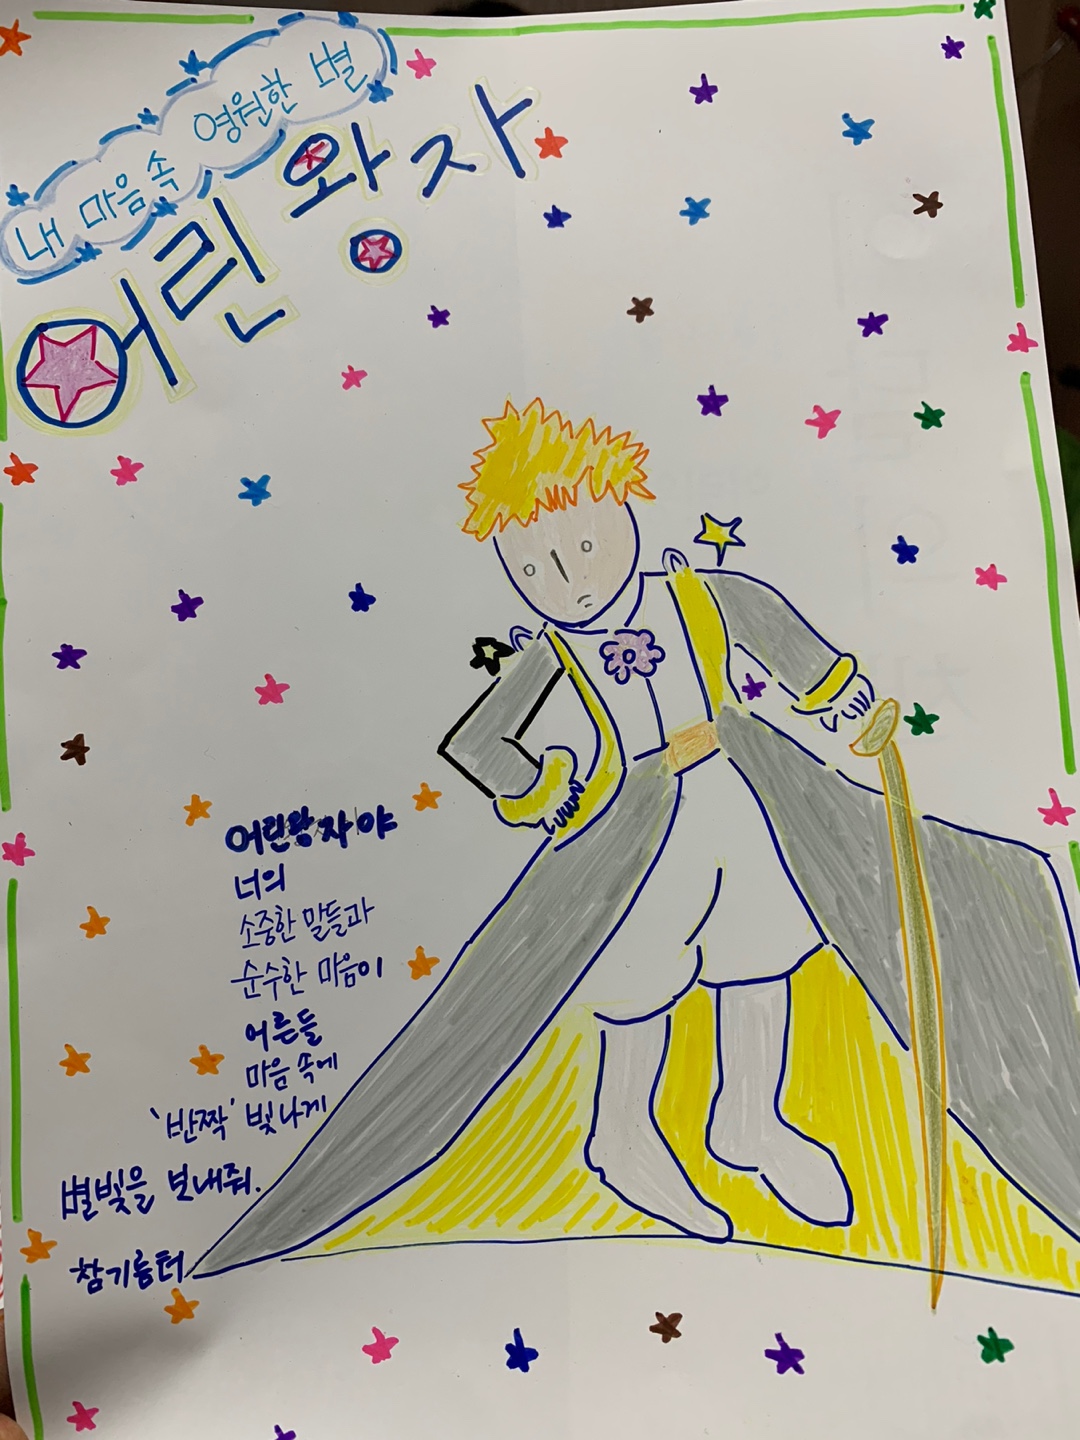 내 마음속 영원한 별
어린왕자
어린왕자야
너의
소중한 말들과
순수한 마음이
어른들
마음 속에
'반짝' 빛나게
별빛을 보내줘.
참기름터